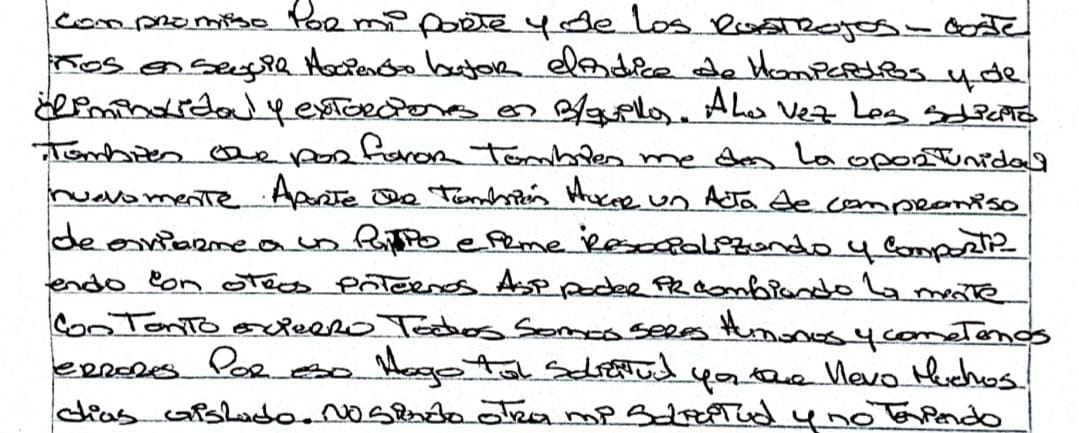 compromiso por mi parte y de los Rastrojos - coste
ños en seguir Haciendo bajar el indice de Homicidios y de
criminalidad y extorciones en B/quilla. A la vez les solicito
Tambien que por favor Tambien me den la oportunidad
nuevamente. Aparte de también Hacer un Acta de compromiso
de enviarme a un Patio e irme resocializando y comparti
endo con otros internos Asi poder ir cambiando la mente
con Tanto encierro Todos somos seres Humanos y cometemos
errores Por eso Hago tal solicitud ya que llevo Muchos
dias aislado. No siendo otra mi solicitud y no Teniendo